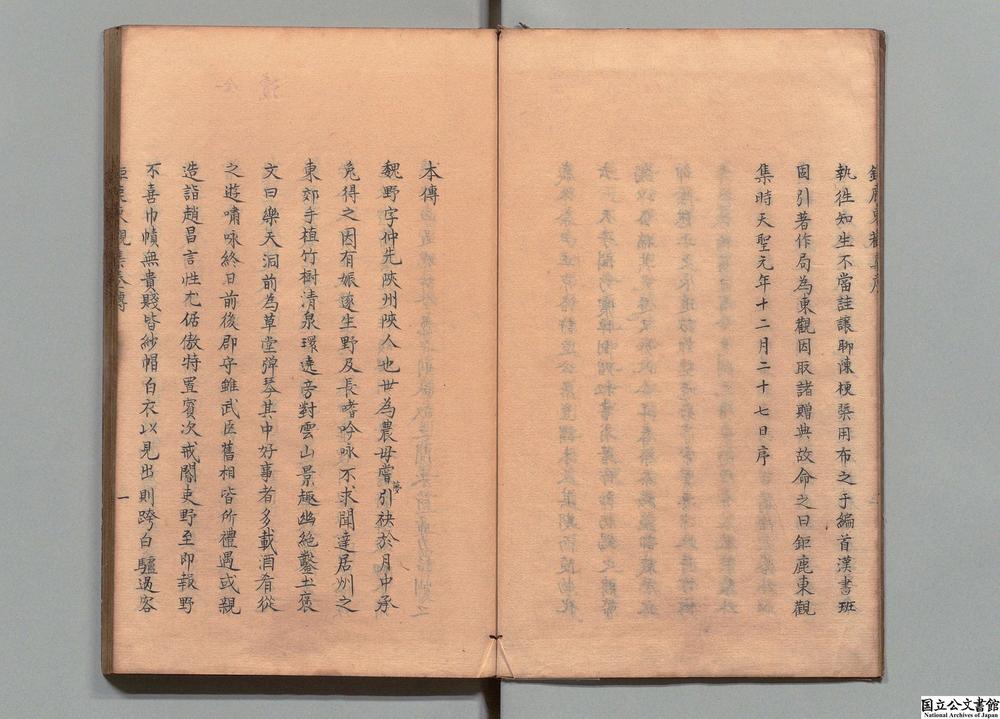 鉅鹿東觀集序
執徃知生不當詿讓聊陳梗槩用布之于編首漢書班
固引著作局為東觀因取諸贈典故命之曰鉅鹿東觀
集時天聖元年十二月二十七日序
本傳
魏野字仲先陜州陜人也世為農母嘗夢引袂於月中承
兔得之因有娠遂生野及長嗜吟咏不求聞達居州之
東郊手植竹樹清泉環遶旁對雲山景趣幽絶鑿土袤
文曰樂天洞前為草堂彈琴其中好事者多載酒肴從
之遊嘯咏終日前後郡守雖武臣舊相皆所禮遇或親
造詣趙昌言性尤倨傲特置賓次戒閽吏野至即報野
不喜巾幘無貴賤皆紗帽白衣以見出則跨白驢過客
鉅鹿東觀集本傳
一
国立公文書館
National Archives of Japan